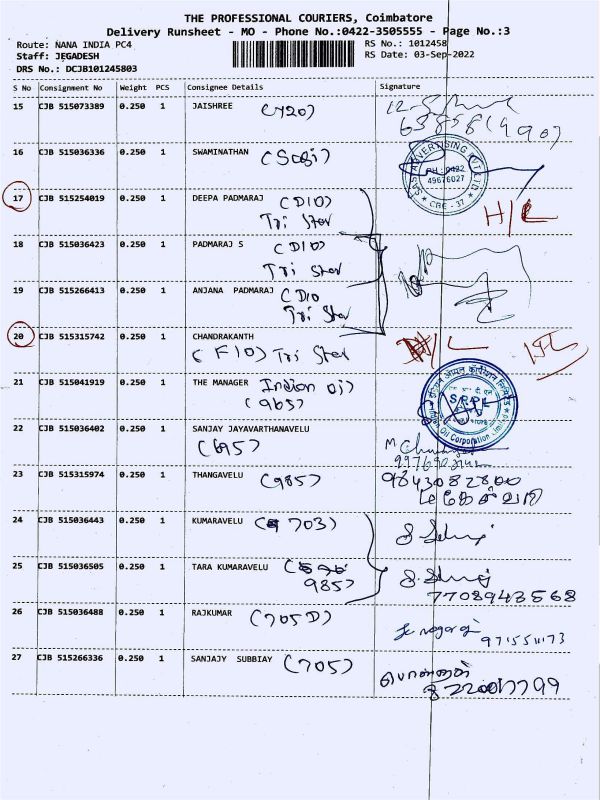 THE PROFESSIONAL COURIERS, Coimbatore
Delivery Runsheet - MO - Phone No.:0422-3505555 - Page No.:3
Route: NANA INDIA PC4
RS No.: 1012458
Staff: JEGADESH
RS Date: 03-Sep-2022
DRS No.: DCJB101245803
S No Consignment No Weight PCS Consignee Details Signature
15 CJB 515073389 0.250 1 JAISHREE (420)
63858 (990)
16 CJB 515036336 0.250 1 SWAMINATHAN
PH: 0422
49676027
CBE - 37
17 CJB 515254019 0.250 1 DEEPA PADMARAJ (D10)
Tri Star
H/L
18 CJB 515036423 0.250 1 PADMARAJ S (D10)
Tri Star
19 CJB 515266413 0.250 1 ANJANA PADMARAJ (D10
Tri Star
20 CJB 515315742 0.250 1 CHANDRAKANTH
(F10) Tri Star
H/L
21 CJB 515041919 0.250 1 THE MANAGER Indian Oil
(965)
Oil Corporation Limited
22 CJB 515036402 0.250 1 SANJAY JAYAVARTHANAVELU
(695)
23 CJB 515315974 0.250 1 THANGAVELU (985)
9843082800
24 CJB 515036443 0.250 1 KUMARAVELU (703)
25 CJB 515036505 0.250 1 TARA KUMARAVELU
985)
7708943568
26 CJB 515036488 0.250 1 RAJKUMAR (705D)
27 CJB 515266336 0.250 1 SANJAJY SUBBIAY (705)